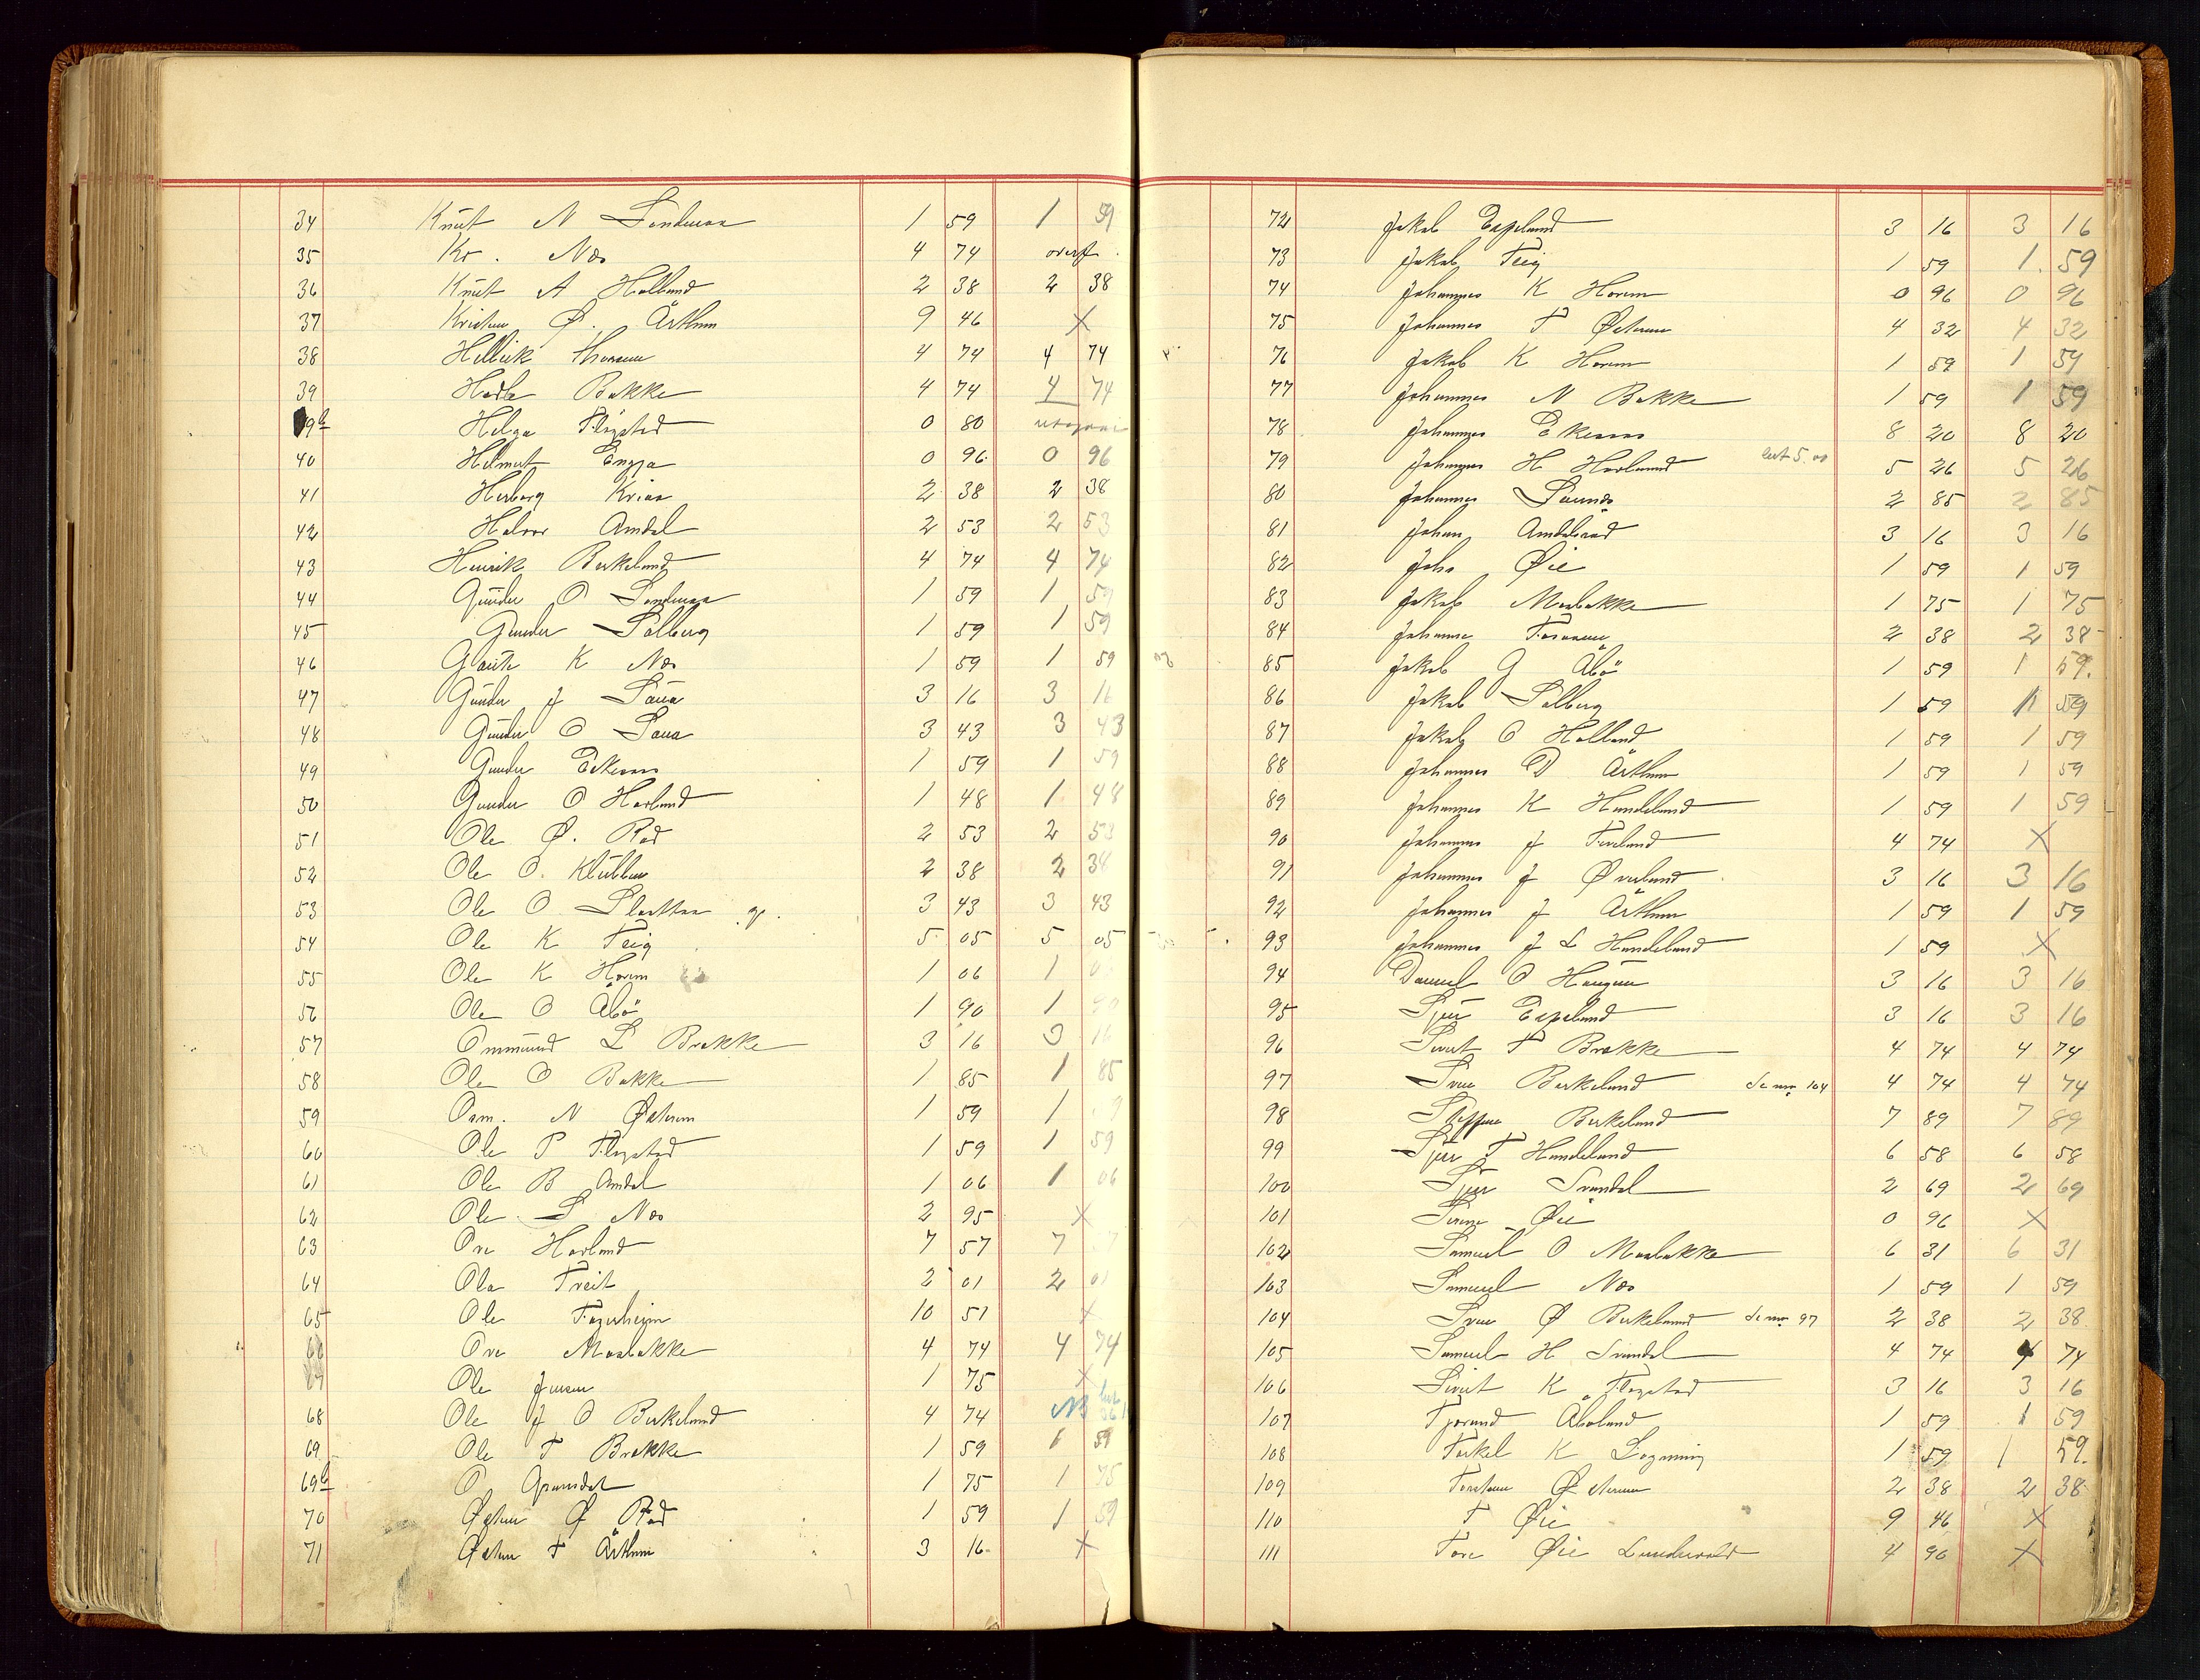 34 Knut N Sandmoa 1 59 1 59
35 Kr. Næs 4 74 overf.
36 Knut A Halland 2 38 2 38
37 Kristen Ø. Årthun 9 46 X
38 Thorsen 4 74 4 74
39 Hadle Bakke 4 74 4 74
39b Helga Fløgstad 0 80
40 Helmert Engja 0 96 0 96
41 Herborg 2 38 2 38
42 Halvor Amdal 2 53 2 53
43 Henrik Birkeland 4 74 4 74
44 Gunder O Sandmoa 1 59 1 59
45 Gunder Solberg 1 59 1 59
46 Gaute K Næs 1 59 1 59
47 Gunder J Saua 3 16 3 16
48 Gunder O Saua 3 43 3 43
49 Gunder Eikenes 1 59 1 59
50 Gunder O Havland 1 48 1 48
51 Ole Ø. Rød 2 53 2 53
52 Ole O. Klubben 2 38 2 38
53 Ole O 3 43 3 43
54 Ole K Teig 5 05 5 05
55 Ole K Horem 1 06 1
56 Ole O Åbø 1 90 1 90
57 Ommund L Brække 3 16 3 16
58 Ole O Bakke 1 85 1 85
59 Osm. N Østrem 1 59 1
60 Ole P Fløgstad 1 59 1 59
61 Ole B Amdal 1 06 1 06
62 Ole S Næs 2 95 X
63 Ove Havland 7 57 7
64 Ola Tveit 2 01 2 01
65 Ole Fagerheim 10 51 X
Ove Moabakke 4 74 4 74
Ole Jensen 1 75 X
68 Ole J O Birkeland 4 74
69 Ole T Brække 1 59 1 59
69b O Gramdal 1 75 1 75
70 Østen Ø Rød 1 59 1 59
71 Østen T Årthun 3 16 X
72 Jakob Espeland 3 16 3 16
73 Jakob Teig 1 59 1 59
74 Johannes K Horem 0 96 0 96
75 Johannes T Østrem 4 32 4 32
76 Jakob K Horem 1 59 1 59
77 Johannes N Bakke 1 59 1 59
78 Johannes Eikenes 8 20 8 20
79 Johannes H Havland bet 5.00 5 26 5 26
80 Johannes 2 85 2 85
81 Johan 3 16 3 16
82 Joha Øie 1 59 1 59
83 Jakob Moabakke 1 75 1 75
84 Johanne 2 38 2 38
85 Jakob G Åbø 1 59 1 59
86 Jakob Solberg 1 59 1 59
87 Jakob O Halland 1 59 1 59
88 Johannes D Årthun 1 59 1 59
89 Johannes K Handeland 1 59 1 59
90 Johannes J 4 74 X
91 Johannes J Øverland 3 16 3 16
92 Johannes J Årthun 1 59 1 59
93 Johannes J L Handeland 1 59 X
94 Daniel O Haugen 3 16 3 16
95 Sjur Espeland 3 16 3 16
96 Sivert T Brække 4 74 4 74
97 Sven Birkeland Se nr 104 4 74 4 74
98 Steffen Birkeland 7 89 7 89
99 Sjur T Handeland 6 58 6 58
100 Sjur Svandal 2 69 2 69
101 Øie 0 96 X
102 Samuel O Moabakke 6 31 6 31
103 Samuel Næs 1 59 1 59
104 Sven Ø Birkeland Se nr 97 2 38 2 38
105 Samuel H Svandal 4 74 4 74
106 Sivert K Fløgstad 3 16 3 16
107 Tjerand Åboland 1 59 1 59
108 Torkel K Lygning 1 59 1 59
109 Torsten Østrem 2 38 2 38
110 T Øie 9 46 X
111 Tore Øie Lundevold 4 96 X